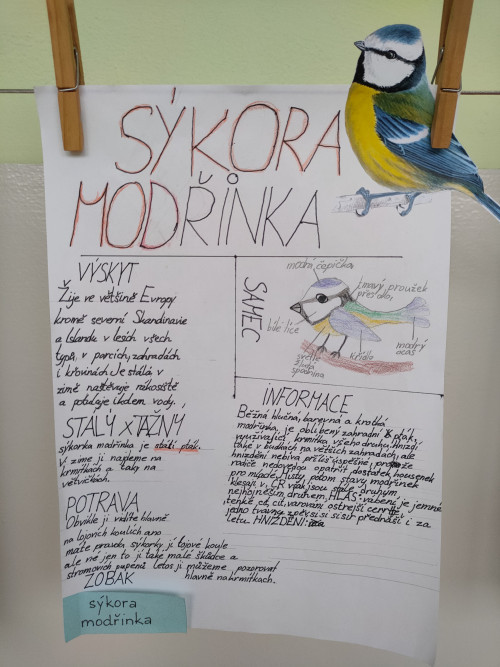 SÝKORA
MODŘINKA
VÝSKYT
Žije ve většině Evropy
kromě severní Skandinavie
a Islandu v lesích všech
typů, v parcích, zahradách
i křovinách Je stálá v
zimě navštěvuje rákosiště
a potuluje lidem vody.
STALÝ x TAŽNÝ
sýkorka modřinka je stálí pták.
V zimě ji najdeme na
krmítkách a taky na
větvičkách.
POTRAVA
Obvikle ji vidíte hlavně
na lojových koulích ano
máte pravdu sýkorky jí lojové koule
ale né jen to jí také malé škůdce a
stromových pupenů letos jí můžeme pozorovat
hlavně na krmítkách.
ZOBÁK
sýkora
modřinka
SAMEC
modrá čepička
tmavý proužek
přes oko,
bílé líce
modrý
ocas
křídlo
světle
žlutá
spodnina
INFORMACE
Běžná hlučná, barevná a krotká
modřinka, je oblíbený zahradní pták,
využívající krmítka všeho druhu. Hnízdí
také v budkách na větších zahradách, ale
hnízdění nebývá příliš úspěšné, protože
rodiče nedovedou opatřit dostatek housenek
pro mláďata. Jistý potom stavy modřinek
klesají v ČR však jsou stále druhým
nejhojnějším druhem, HLAS: vábení je jemné
tenké cit, cit, varování ostřejší cerrrr
jedno tvárný zpěv si si si-sür přednáší i za
letu. HNÍZDĚNÍ: